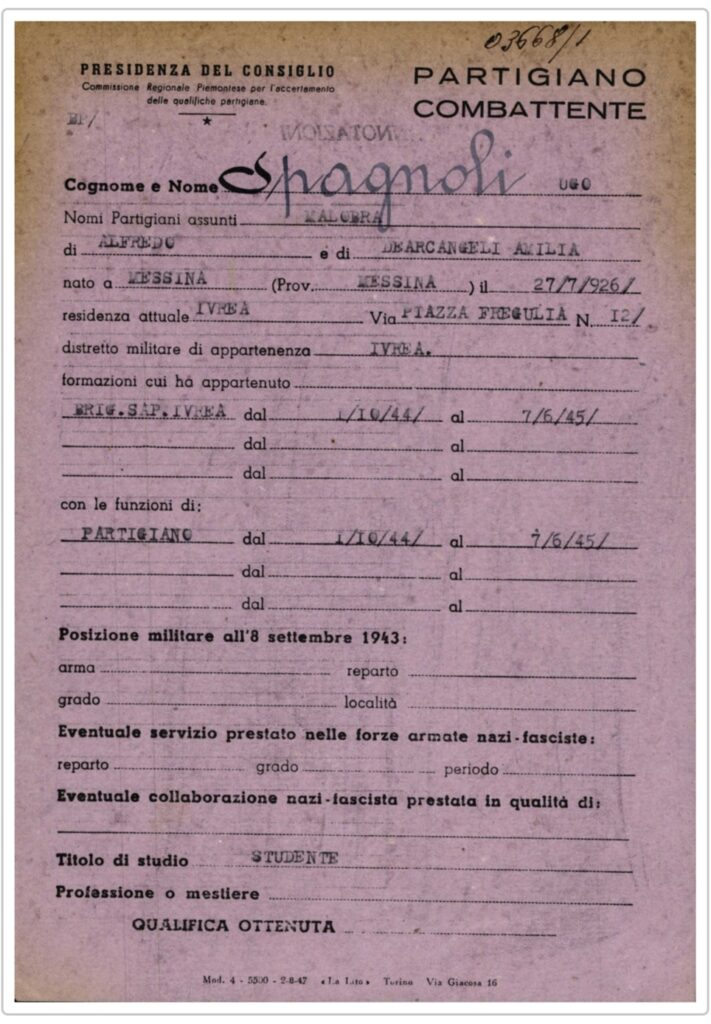 03668/1
PRESIDENZA DEL CONSIGLIO
Commissione Regionale Piemontese per l'accertamento
delle qualifiche partigiane.
PARTIGIANO
COMBATTENTE
BP/
NOTAZIONI
Cognome e Nome Spagnoli UGO
Nomi Partigiani assunti MALOBRA
di ALFREDO e di DEARCANGELI AMILIA
nato a MESSINA (Prov. MESSINA ) il 27/7/926/
residenza attuale IVREA Via PIAZZA FREGULIA N. 12/
distretto militare di appartenenza IVREA.
formazioni cui ha appartenuto
BRIG.SAP.IVREA dal 1/10/44/ al 7/6/45/
dal al
dal al
con le funzioni di:
PARTIGIANO dal 1/10/44/ al 7/6/45/
dal al
dal al
Posizione militare all'8 settembre 1943:
arma reparto
grado località
Eventuale servizio prestato nelle forze armate nazi-fasciste:
reparto grado periodo
Eventuale collaborazione nazi-fascista prestata in qualità di:
Titolo di studio STUDENTE
Professione o mestiere
QUALIFICA OTTENUTA
Mod. 4 - 5500 - 2-8-47 «La Lito» Torino Via Giacosa 16